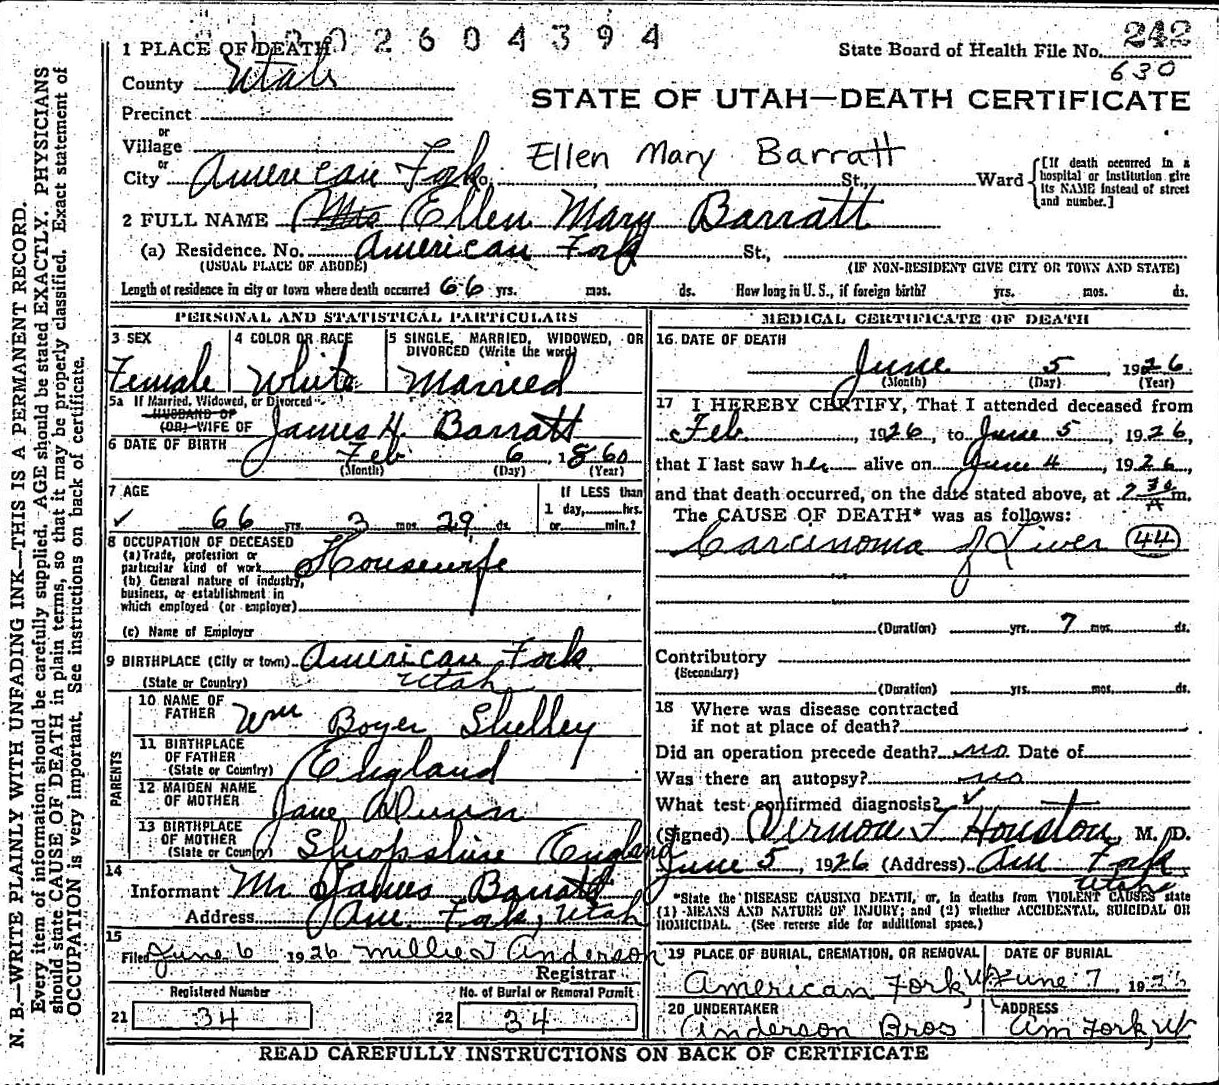 2602604394
State Board of Health File No. 242
630
STATE OF UTAH—DEATH CERTIFICATE
1 PLACE OF DEATH
County Utah
Precinct
or
Village
or
City American Fork No. St., Ward
Ellen Mary Barratt
[If death occurred in a hospital or institution give its NAME instead of street and number.]
2 FULL NAME Mrs Ellen Mary Barratt
(a) Residence. No. American Fork St.,
(USUAL PLACE OF ABODE) (IF NON-RESIDENT GIVE CITY OR TOWN AND STATE)
Length of residence in city or town where death occurred 66 yrs. mos. ds. How long in U. S., if foreign birth? yrs. mos. ds.
PERSONAL AND STATISTICAL PARTICULARS
3 SEX
Female
4 COLOR OR RACE
White
5 SINGLE, MARRIED, WIDOWED, OR DIVORCED (Write the word)
Married
5a If Married, Widowed, or Divorced
HUSBAND OF
(OR) WIFE OF James H. Barratt
6 DATE OF BIRTH Feb 6, 1860
(Month) (Day) (Year)
7 AGE
✓ 66 yrs. 3 mos. 29 ds.
If LESS than
1 day, hrs.
or min.?
8 OCCUPATION OF DECEASED
(a) Trade, profession or particular kind of work Housewife
(b) General nature of industry, business, or establishment in which employed (or employer)
(c) Name of Employer
9 BIRTHPLACE (City or town) American Fork
(State or Country) Utah
PARENTS
10 NAME OF FATHER Wm Boyer Shelley
11 BIRTHPLACE OF FATHER (State or Country) England
12 MAIDEN NAME OF MOTHER Jane Dunn
13 BIRTHPLACE OF MOTHER (State or Country) Shropshire England
14
Informant Mr James Barratt
Address Am. Fork, Utah
15
Filed June 6 1926 Millie T Anderson
Registrar
Registered Number
21 34
No. of Burial or Removal Permit
22 34
MEDICAL CERTIFICATE OF DEATH
16 DATE OF DEATH
June 5, 1926
(Month) (Day) (Year)
17 I HEREBY CERTIFY, That I attended deceased from
Feb, 1926, to June 5, 1926,
that I last saw her alive on June 4, 1926,
and that death occurred, on the date stated above, at 2 30 A m.
The CAUSE OF DEATH* was as follows:
Carcinoma of Liver 44
(Duration) yrs. 7 mos. ds.
Contributory
(Secondary)
(Duration) yrs. mos. ds.
18 Where was disease contracted
if not at place of death?
Did an operation precede death? no Date of
Was there an autopsy? no
What test confirmed diagnosis? ✓
(Signed) Vernon F Houston, M. D.
June 5, 1926 (Address) Am Fork
Utah
*State the DISEASE CAUSING DEATH, or, in deaths from VIOLENT CAUSES state
(1) MEANS AND NATURE OF INJURY; and (2) whether ACCIDENTAL, SUICIDAL OR
HOMICIDAL. (See reverse side for additional space.)
19 PLACE OF BURIAL, CREMATION, OR REMOVAL
American Fork Ut
DATE OF BURIAL
June 7, 1926
20 UNDERTAKER
Anderson Bros
ADDRESS
Am Fork, Ut
READ CAREFULLY INSTRUCTIONS ON BACK OF CERTIFICATE
N. B.—WRITE PLAINLY WITH UNFADING INK—THIS IS A PERMANENT RECORD.
Every item of information should be carefully supplied. AGE should be stated EXACTLY. PHYSICIANS
should state CAUSE OF DEATH in plain terms, so that it may be properly classified. Exact statement of
OCCUPATION is very important. See instructions on back of certificate.